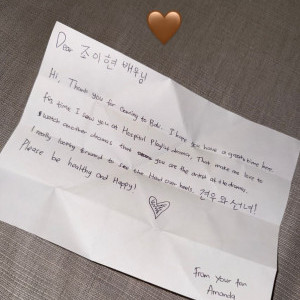 Dear 조이현 배우님
Hi, Thank you for coming to Bali. I hope you have a greats time here.
First time I saw you at Hospital Playlist drama, That make me love to
watch another dramas that you are the actrist at the drama.
I really looking forward to see the Head over heels. 견우와선녀!
Please be healthy and Happy!
From your fan
Amanda